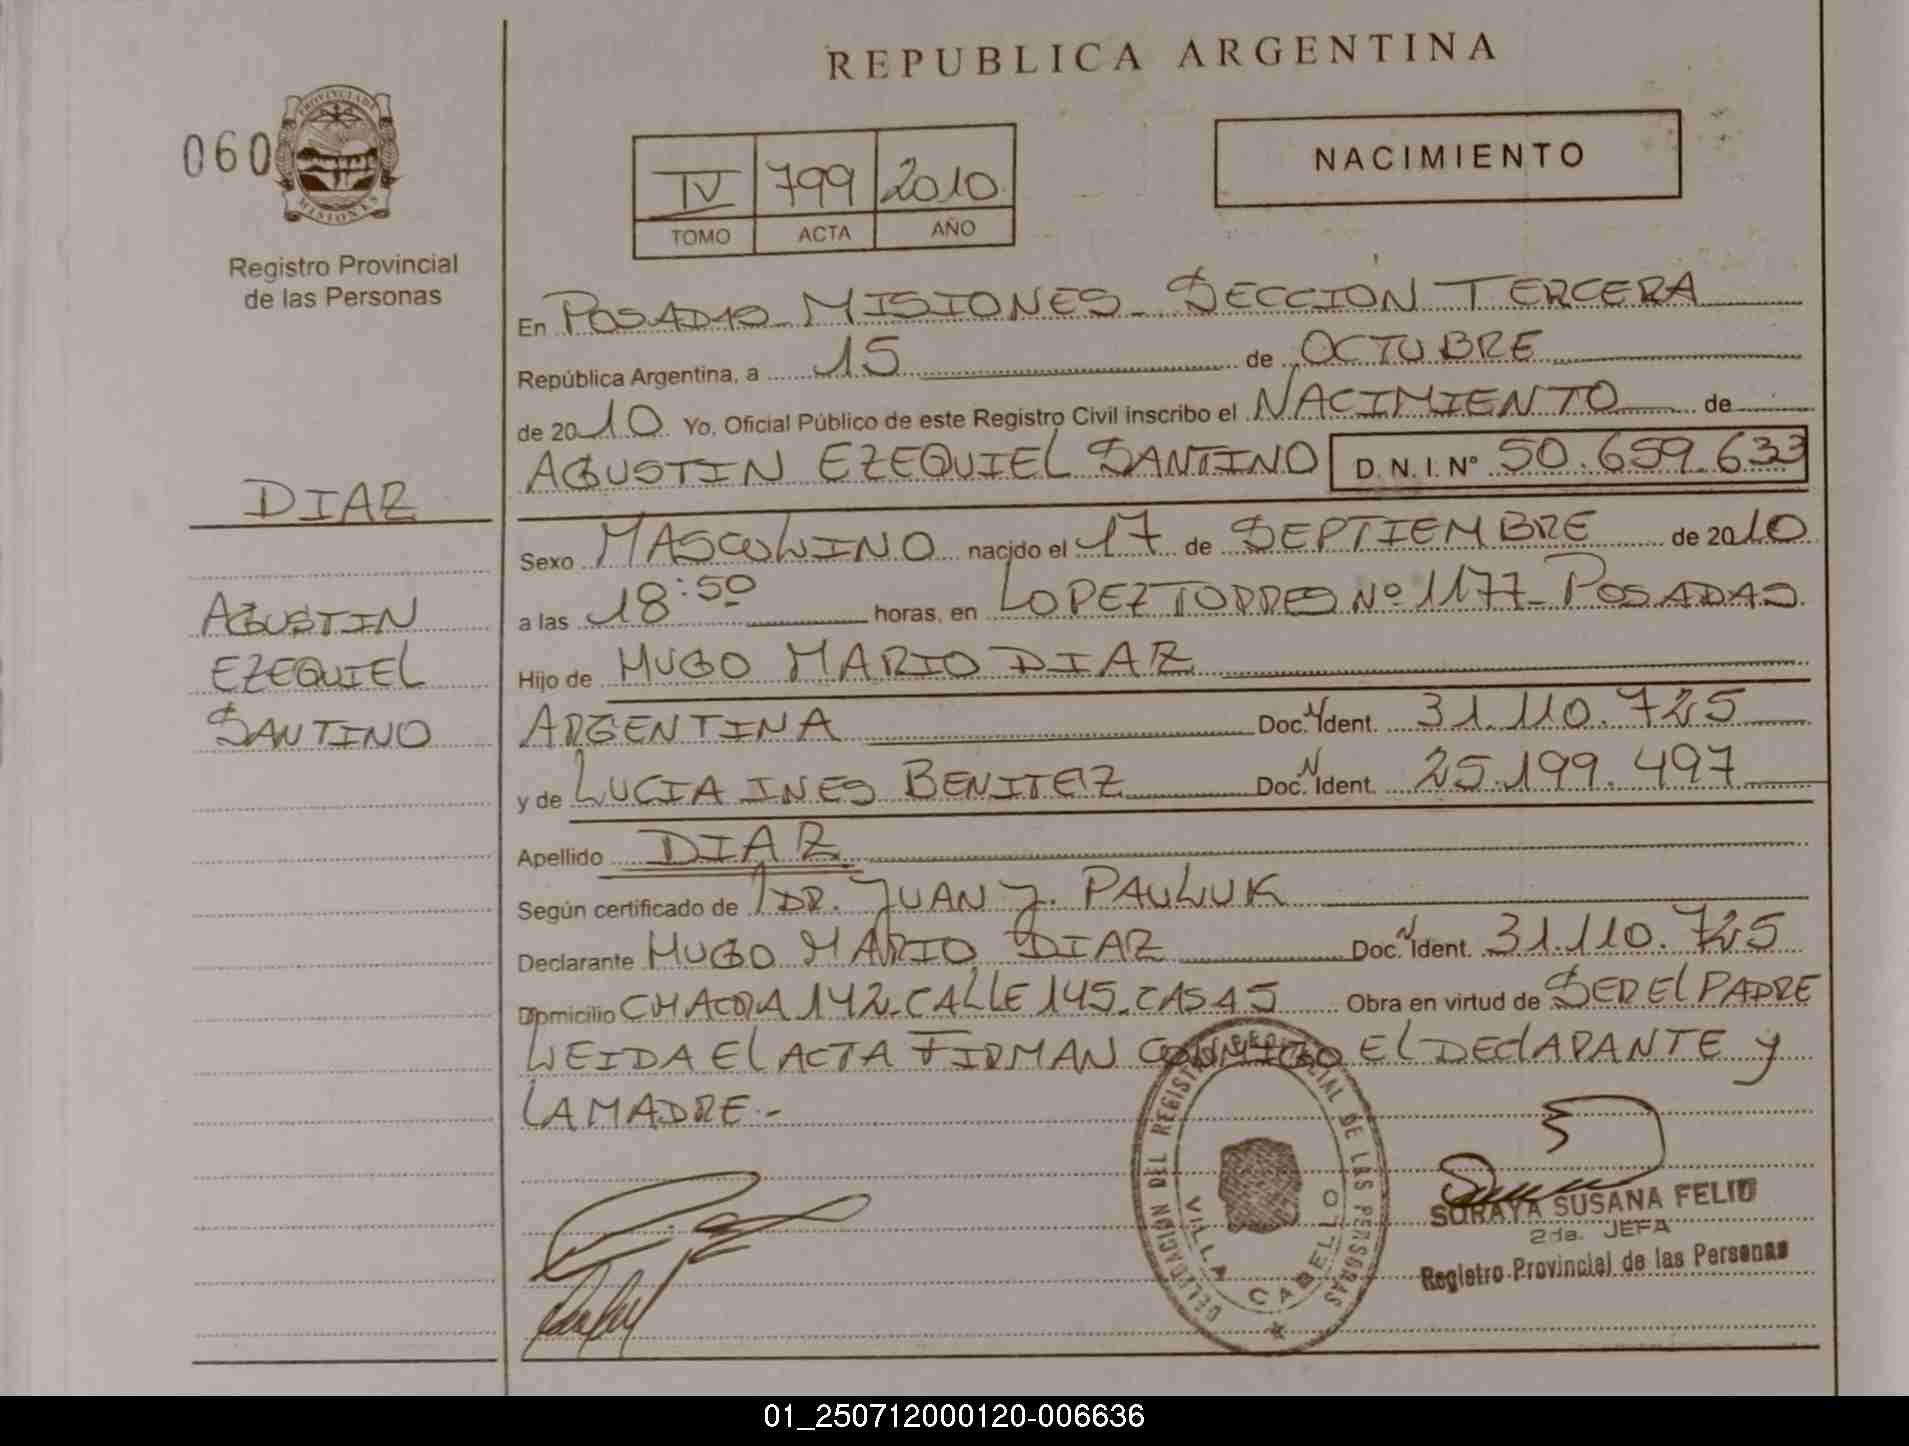 REPUBLICA ARGENTINA
060
PROVINCIA DE
MISIONES
Registro Provincial
de las Personas
IV 799 2010
TOMO ACTA AÑO
NACIMIENTO
En POSADAS MISIONES - SECCION TERCERA
República Argentina, a 15 de OCTUBRE
de 2010 Yo, Oficial Público de este Registro Civil inscribo el NACIMIENTO de
AGUSTIN EZEQUIEL SANTINO D.N.I. Nº 50.659.633
DIAZ
AGUSTIN
EZEQUIEL
SANTINO
Sexo MASCULINO nacido el 17 de SEPTIEMBRE de 2010
a las 18:50 horas, en LOPEZ TORRES Nº 1177 - POSADAS
Hijo de HUGO MARIO DIAZ
ARGENTINA Doc. N Ident. 31.110.725
y de LUCIA INES BENITEZ Doc. N Ident. 25.199.497
Apellido DIAZ
Según certificado de DR. JUAN J. PAULUK
Declarante HUGO MARIO DIAZ Doc. N Ident. 31.110.725
Domicilio CHACRA 142 - CALLE 145 - CASA 5 Obra en virtud de SER EL PADRE
LEIDA EL ACTA FIRMAN CONMIGO EL DECLARANTE Y
LA MADRE.-
DELEGACION DEL REGISTRO PROVINCIAL DE LAS PERSONAS
VILLA CABELLO
SORAYA SUSANA FELIU
2da. JEFA
Registro Provincial de las Personas
01_250712000120-006636